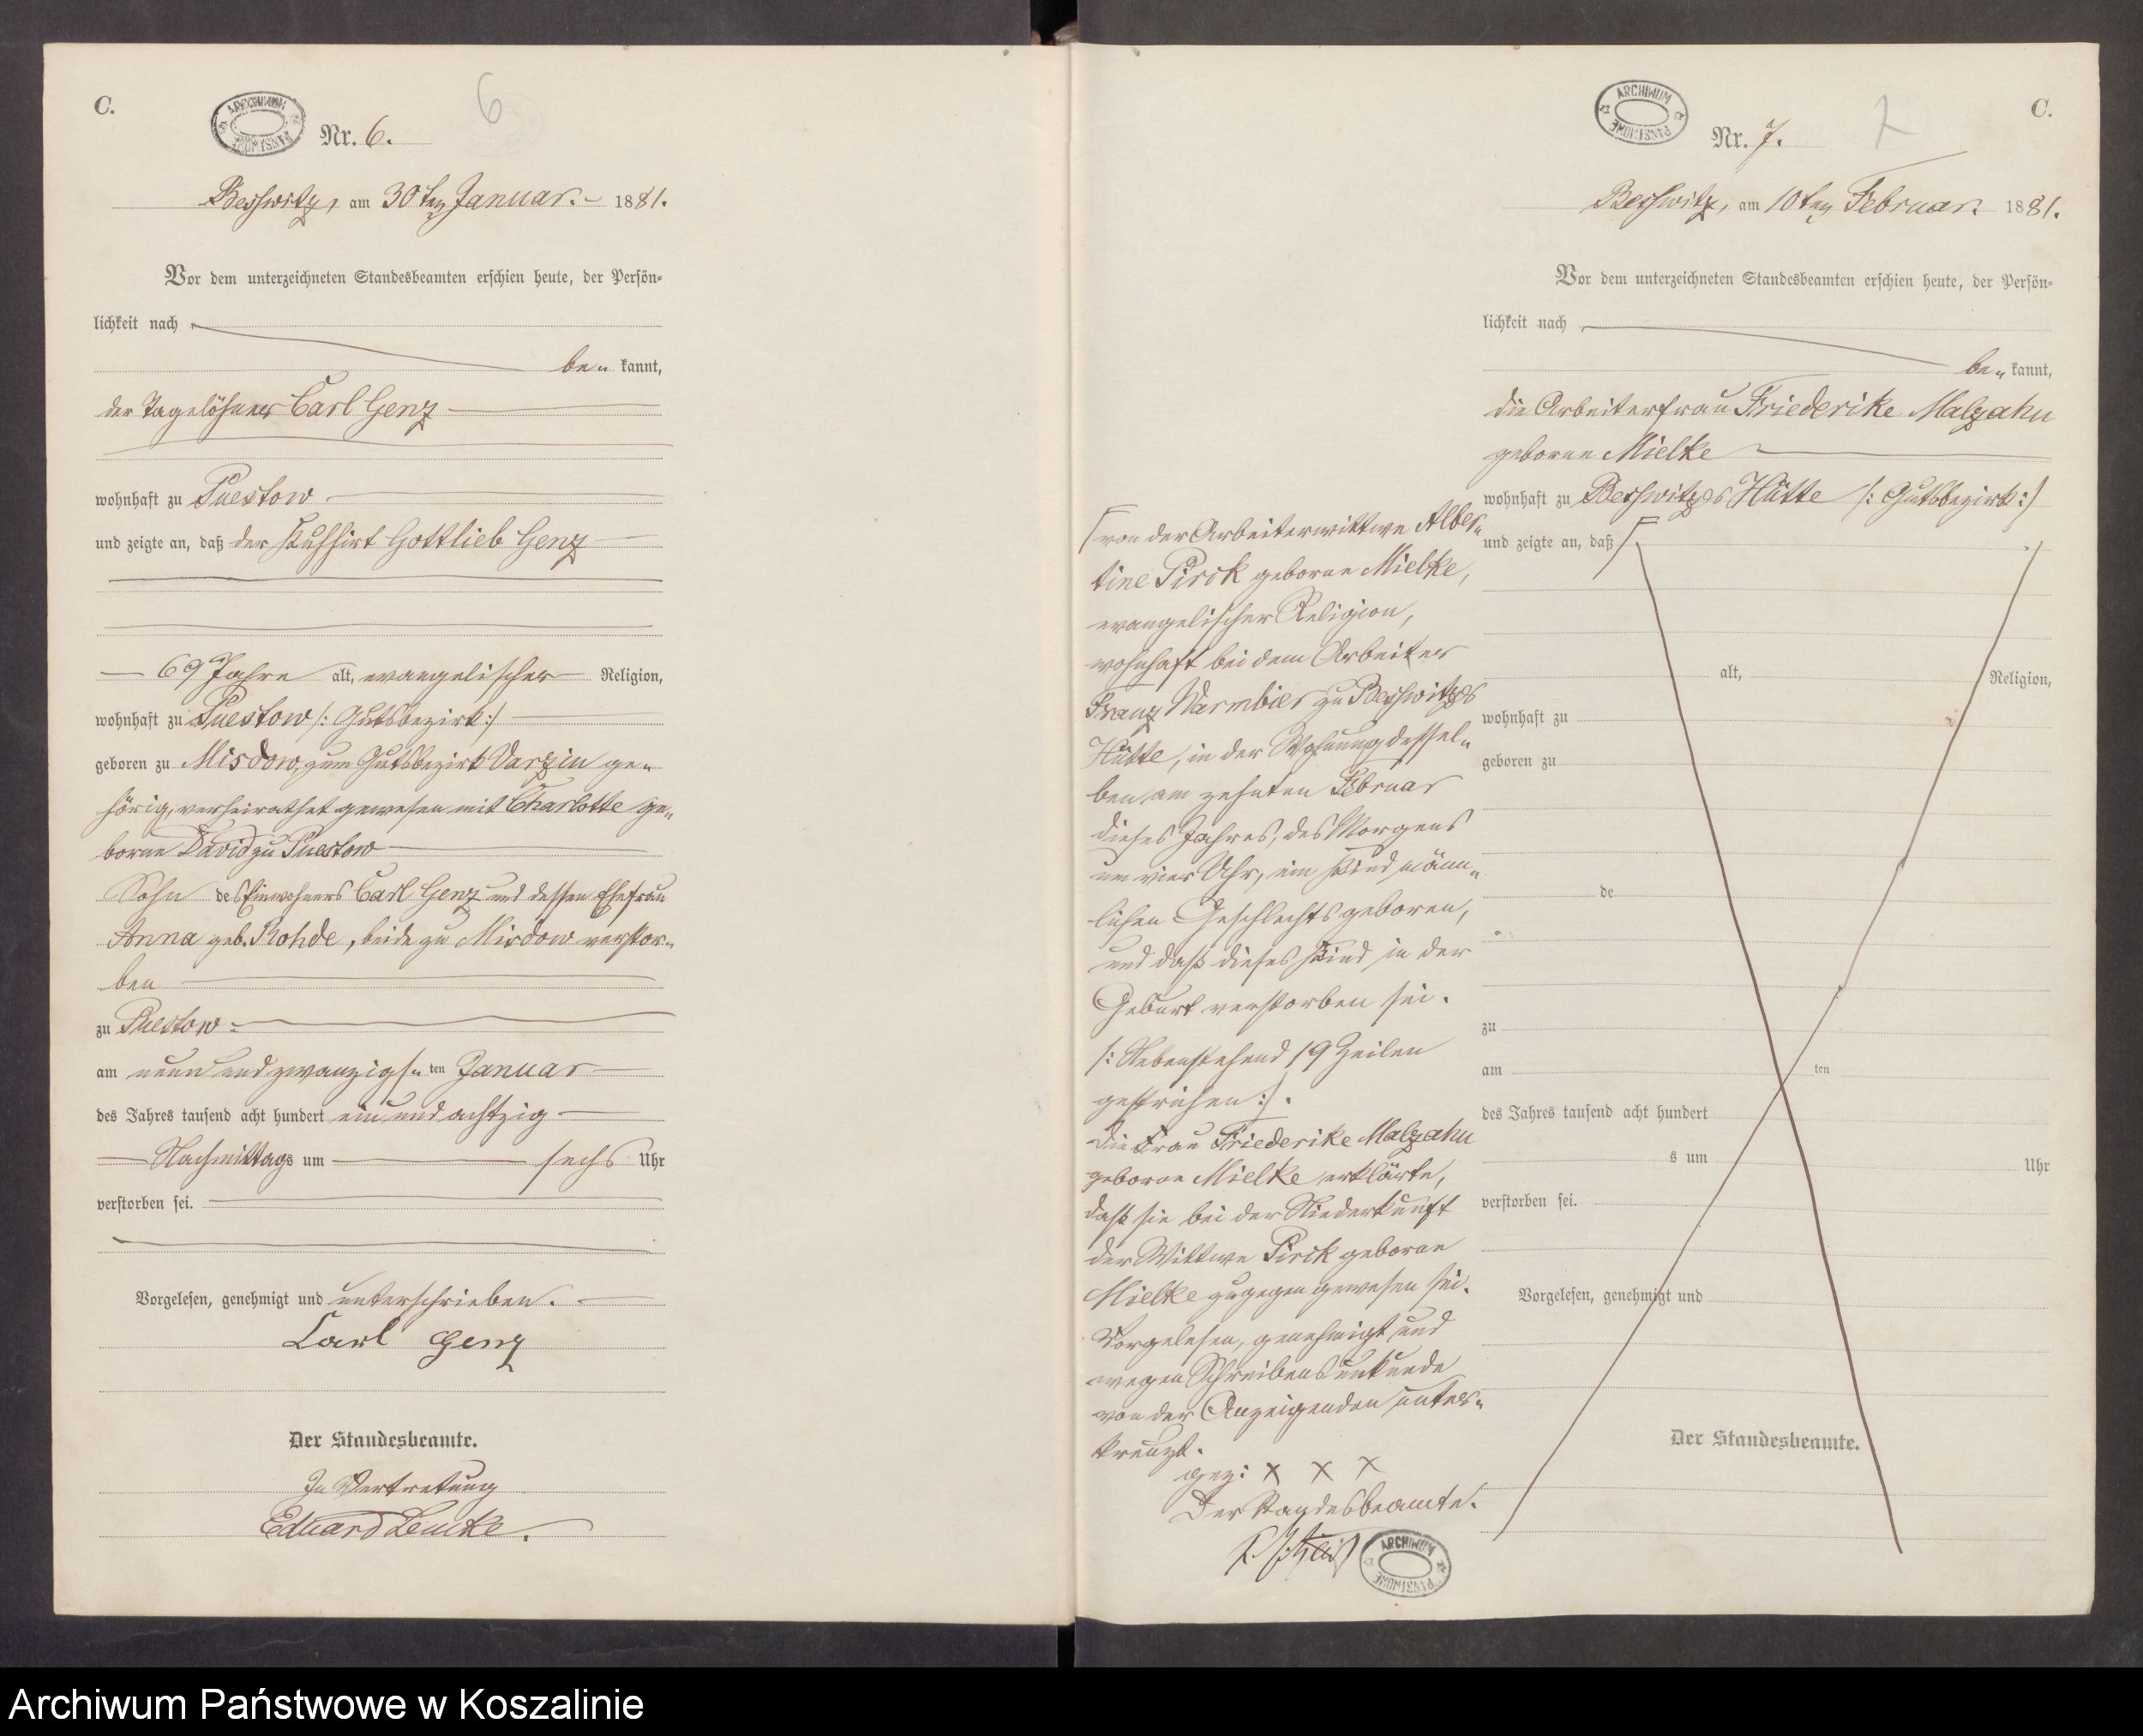 C.
ARCHIWUM PAŃSTWOWE
6
Nr. 6.
Beßwitz, am 30ten Januar. 1881.
Vor dem unterzeichneten Standesbeamten erschien heute, der Persön-
lichkeit nach
be- kannt,
der Tagelöhner Carl Genz
wohnhaft zu Puestow
und zeigte an, daß der Kuhhirt Gottlieb Genz
69 Jahre alt, evangelischer Religion,
wohnhaft zu Puestow /: Gutsbezirk :/
geboren zu Misdow, zum Gutsbezirk Varzin ge-
hörig, verheirathet gewesen mit Charlotte ge-
borne David zu Puestow
Sohn des Einwohners Carl Genz und dessen Ehefrau
Anna geb. Rohde, beide zu Misdow verstor-
ben
zu Puestow
am neun und zwanzigs- ten Januar
des Jahres tausend acht hundert ein und achtzig
Nachmittags um sechs Uhr
verstorben sei.
Vorgelesen, genehmigt und unterschrieben.
Carl Genz
Der Standesbeamte.
In Vertretung
Eduard Lemcke.
C.
ARCHIWUM PAŃSTWOWE
7
Nr. 7.
Beßwitz, am 10ten Februar. 1881.
Vor dem unterzeichneten Standesbeamten erschien heute, der Persön-
lichkeit nach
be- kannt,
die Arbeiterfrau Friederike Malzahn
geborne Mielke
wohnhaft zu Beßwitzer Hütte /: Gutsbezirk :/
und zeigte an, daß
alt, Religion,
wohnhaft zu
geboren zu
de
zu
am ten
des Jahres tausend acht hundert
s um Uhr
verstorben sei.
Vorgelesen, genehmigt und
Der Standesbeamte.
von der Arbeiterwittwe Alber-
tine Pirck geborne Mielke,
evangelischer Religion,
wohnhaft bei dem Arbeiter
Franz Warmbier zu Beßwitzer
Hütte, in der Wohnung dessel-
ben, am zehnten Februar
dieses Jahres, des Morgens
um vier Uhr, ein Kind männ-
lichen Geschlechts geboren,
und daß dieses Kind in der
Geburt verstorben sei.
/: Nebenstehend 19 Zeilen
gestrichen :/.
Die Frau Friederike Malzahn
geborne Mielke erklärte,
daß sie bei der Niederkunft
der Wittwe Pirck geborne
Mielke zugegen gewesen sei.
Vorgelesen, genehmigt und
wegen Schreibensunkunde
von der Anzeigenden unter-
kreuzt.
gez: x x x
Der Standesbeamte.
ARCHIWUM PAŃSTWOWE
Archiwum Państwowe w Koszalinie